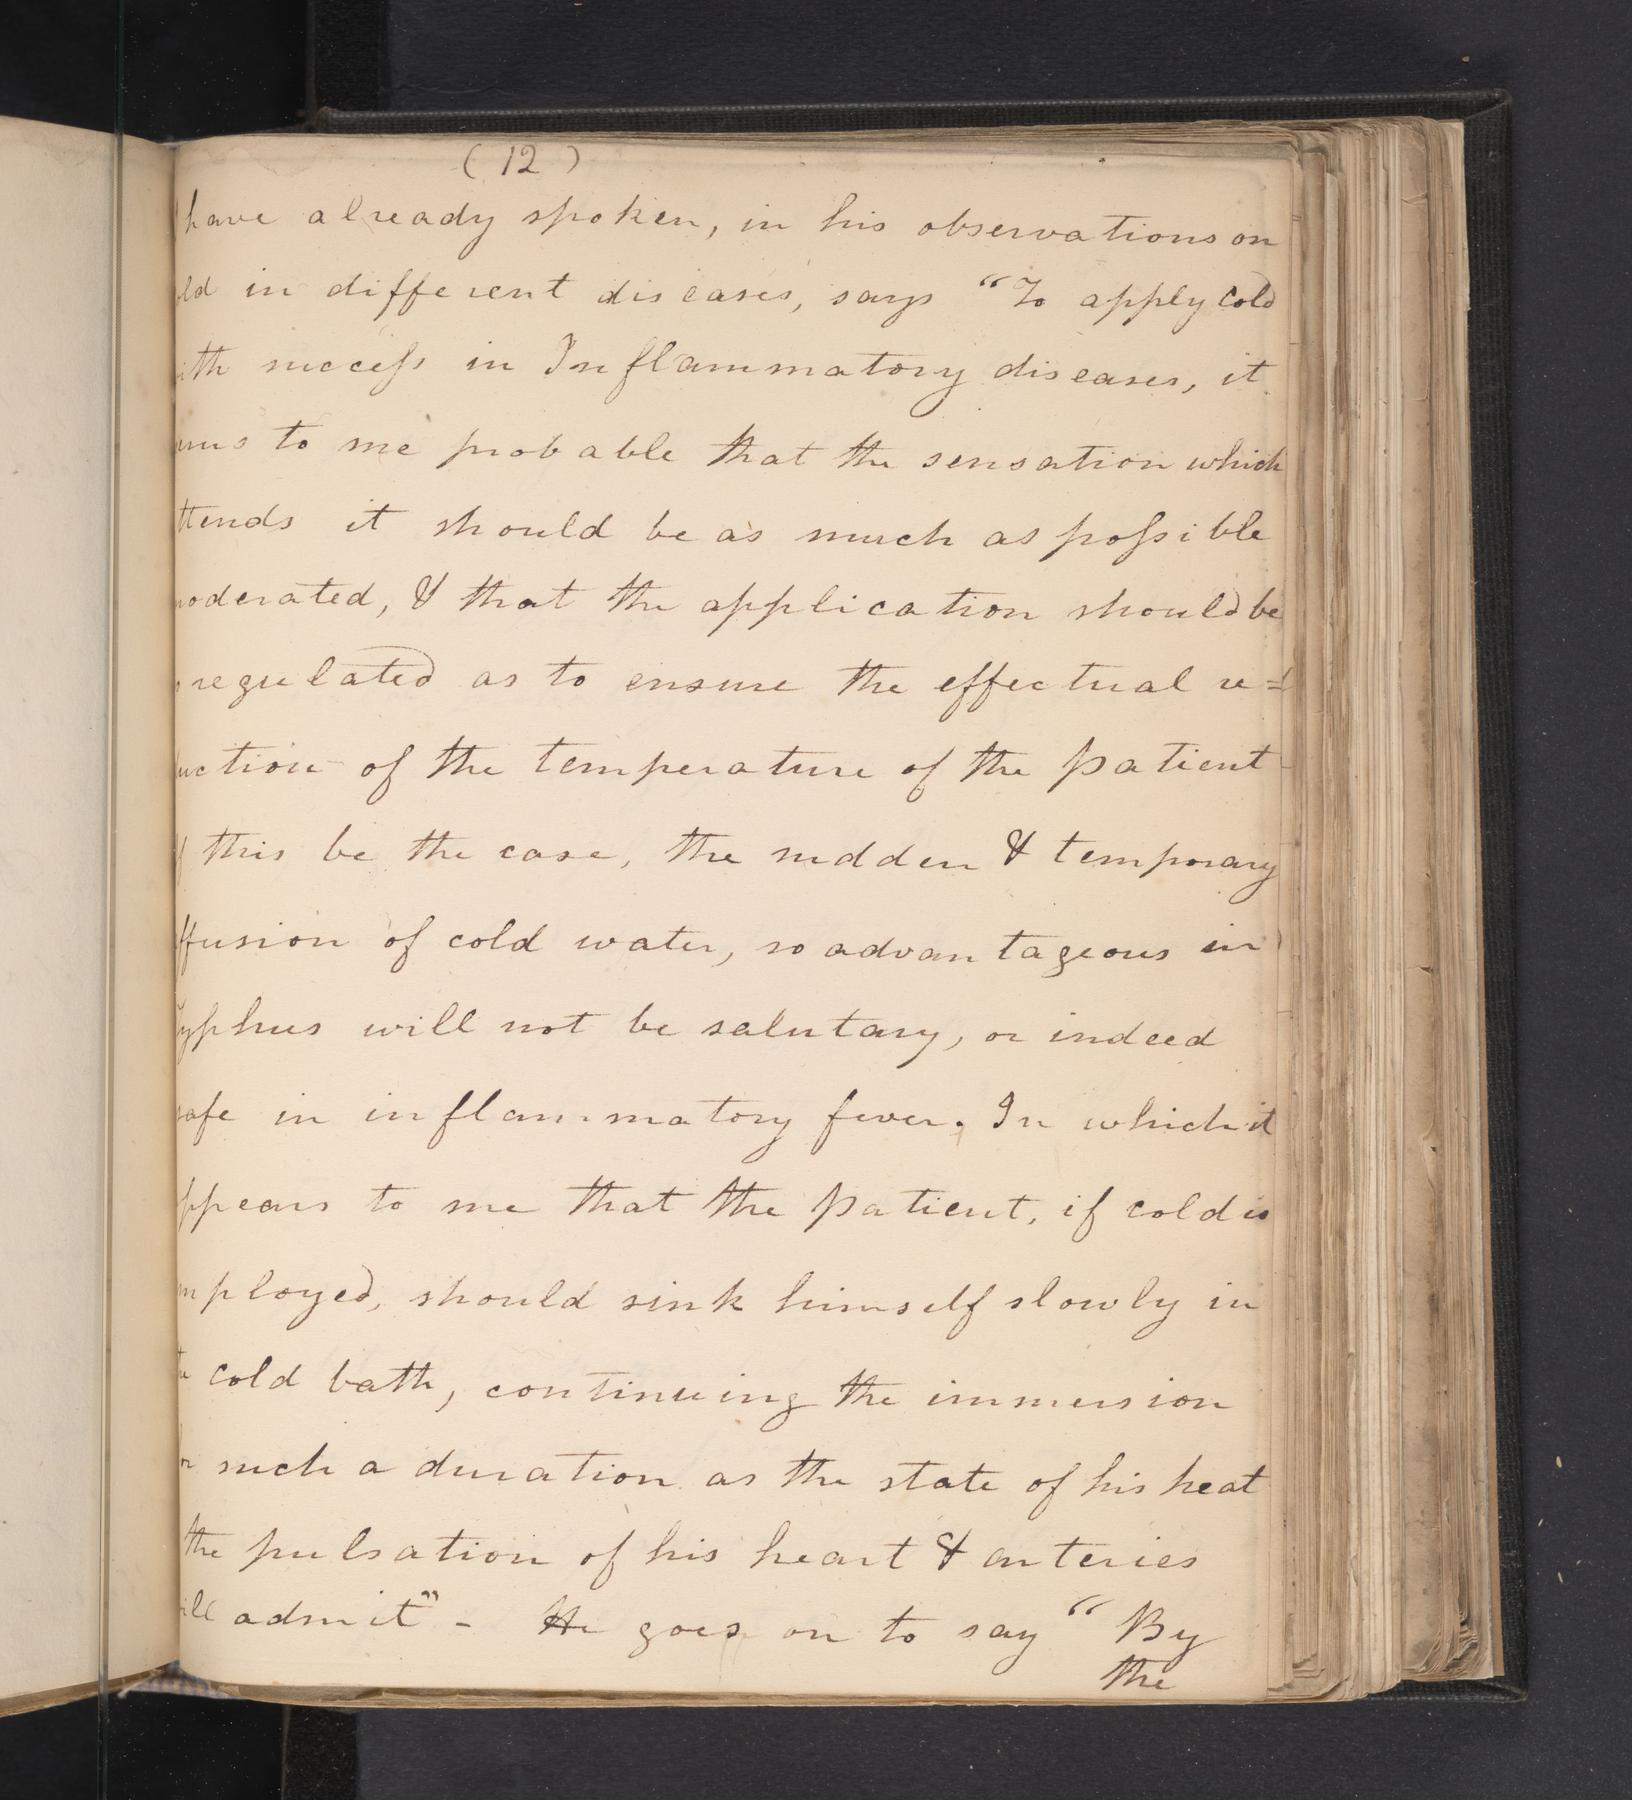 (12)
have already spoken, in his observations on
ld in different diseases, says "To apply cold
ith success in Inflammatory diseases, it
ems to me probable that the sensation which
ttends it should be as much as possible
moderated, & that the application should be
regulated as to ensure the effectual re=
uction of the temperature of the patient
this be the case, the sudden & temporary
ffusion of cold water, so advantageous in
yphus will not be salutary, or indeed
safe in inflammatory fever. In which it
ppears to me that the patient, if cold is
mployed, should sink himself slowly in
cold bath, continuing the immersion
or such a duration as the state of his heat
the pulsation of his heart & arteries
ill admit" - He goes on to say "By
the